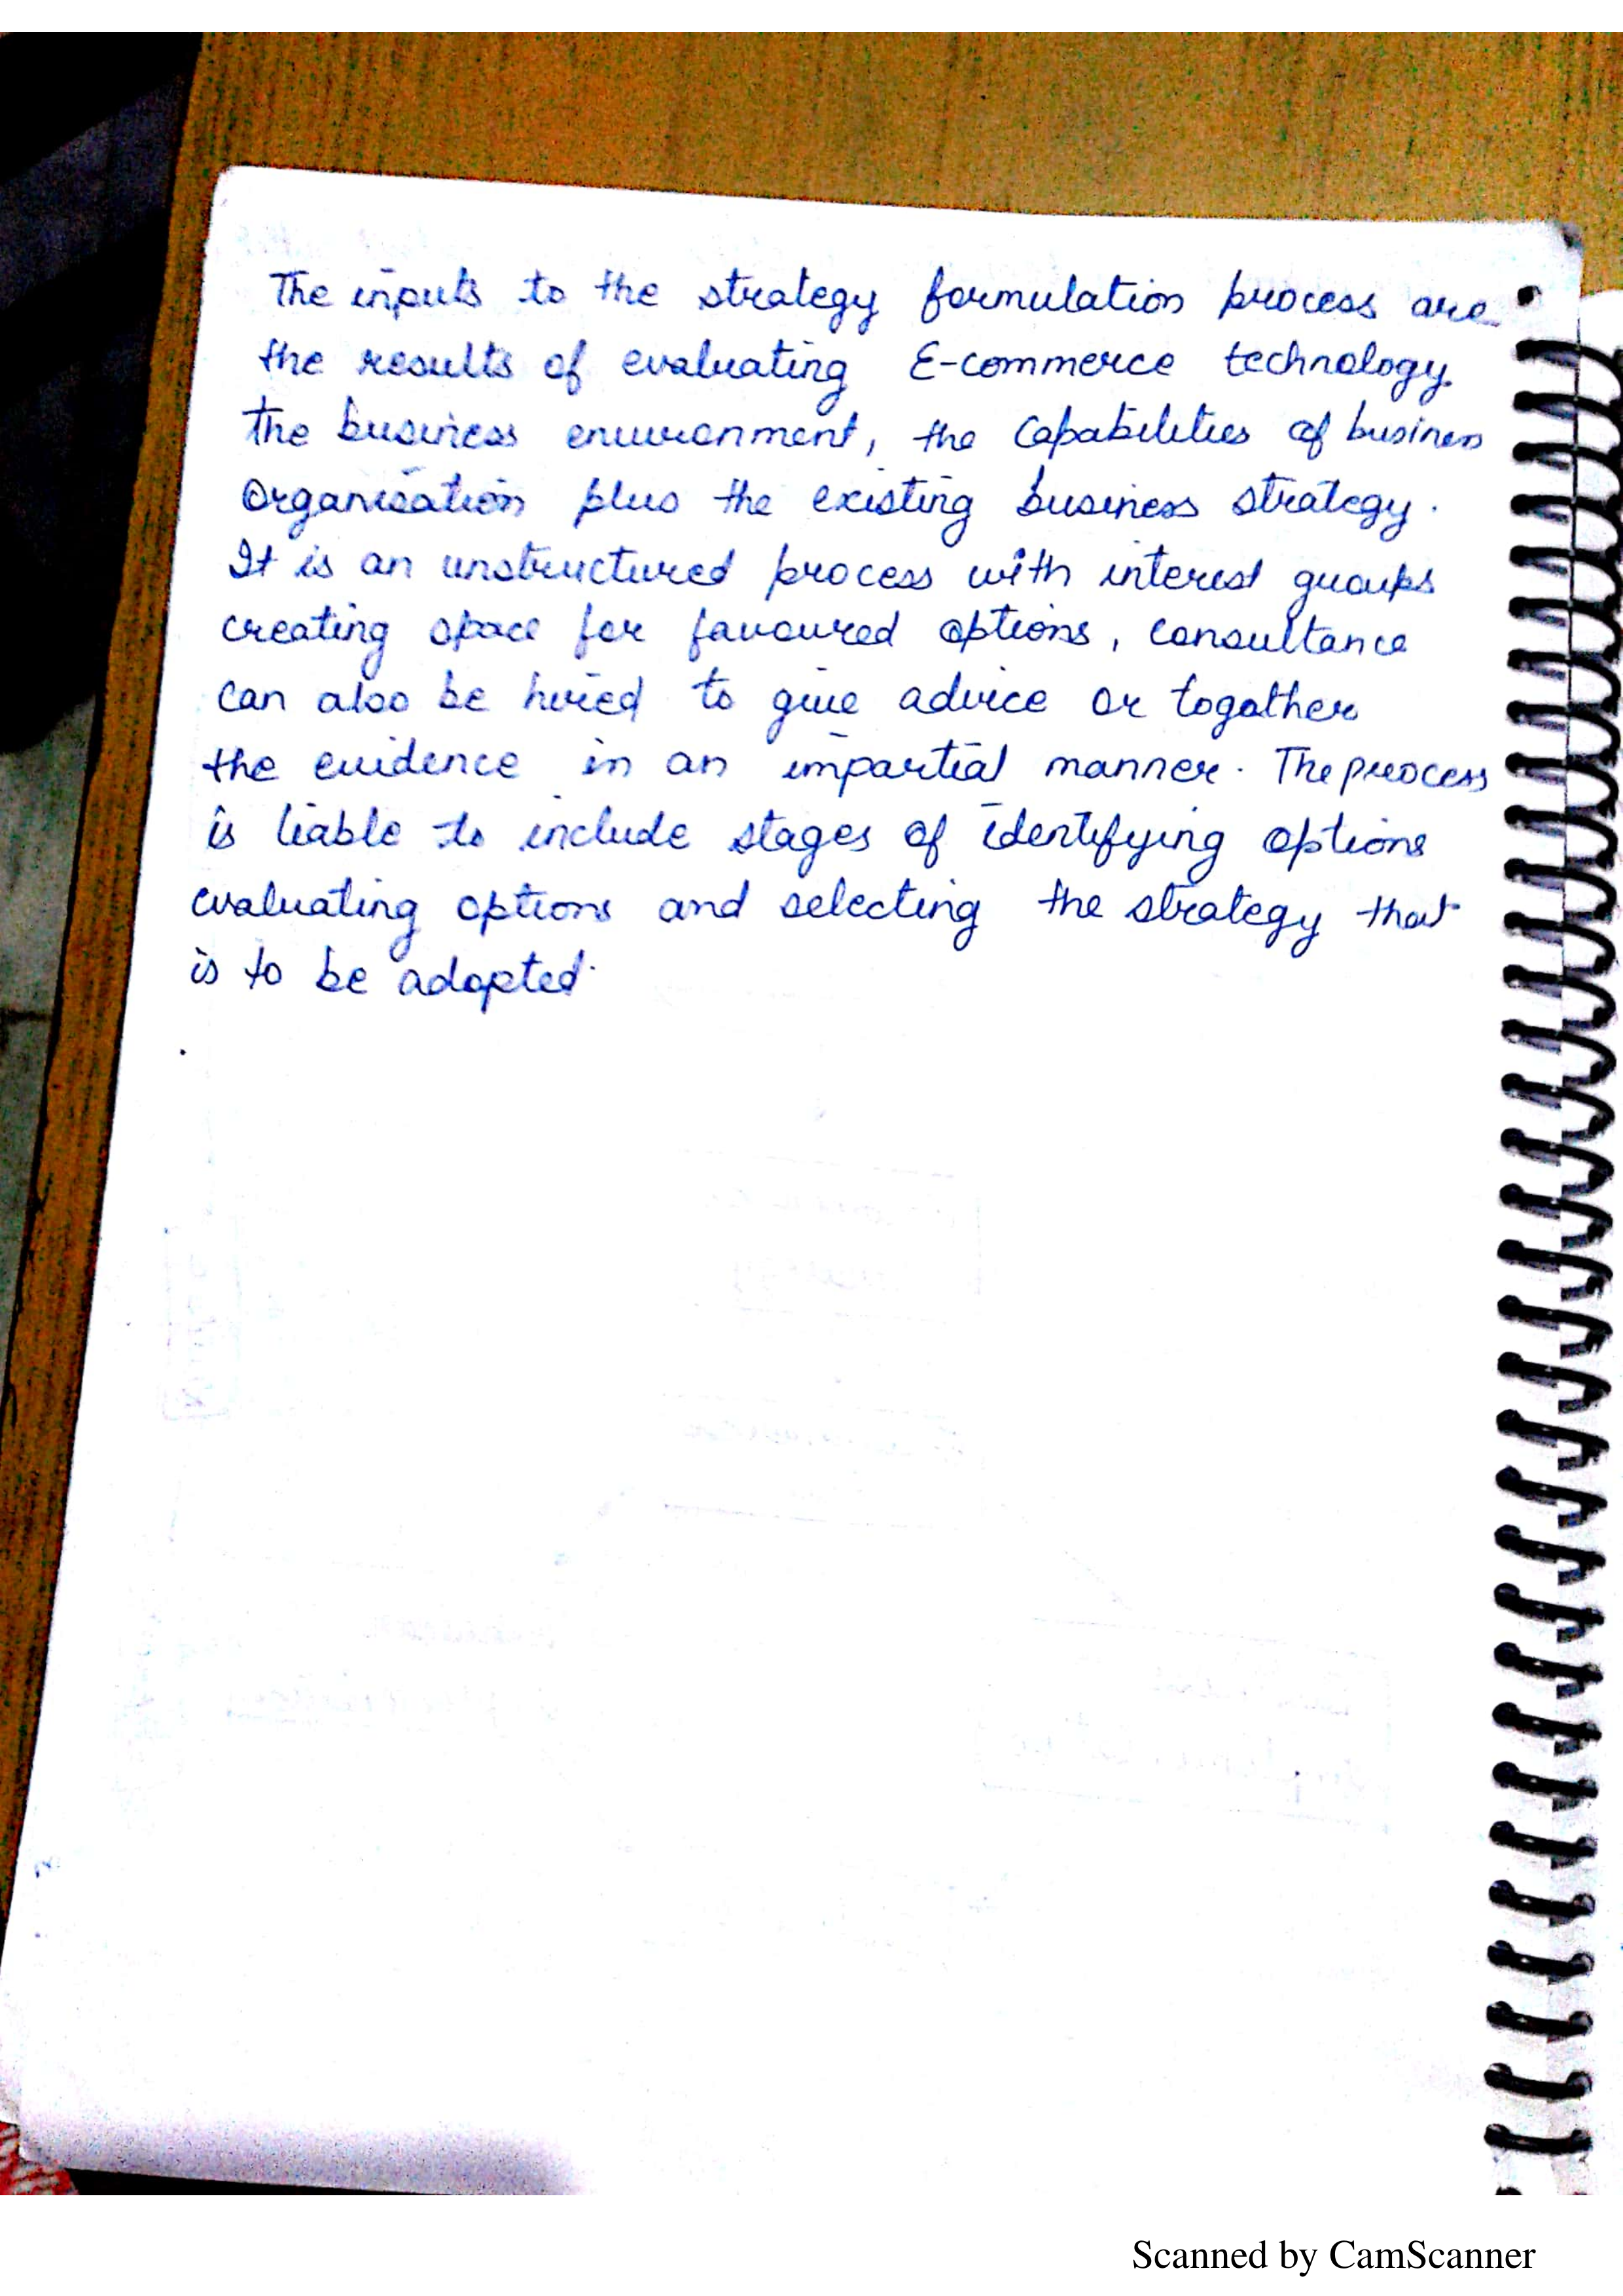 The inputs to the strategy formulation process are
the results of evaluating E-commerce technology.
The business environment, the capabilities of business
Organisation plus the existing business strategy.
It is an unstructured process with interest groups
creating space for favoured options, consultance
can also be hired to give advice or togather
the evidence in an impartial manner. The process
is liable to include stages of identifying options
evaluating options and selecting the strategy that
is to be adopted.
Scanned by CamScanner